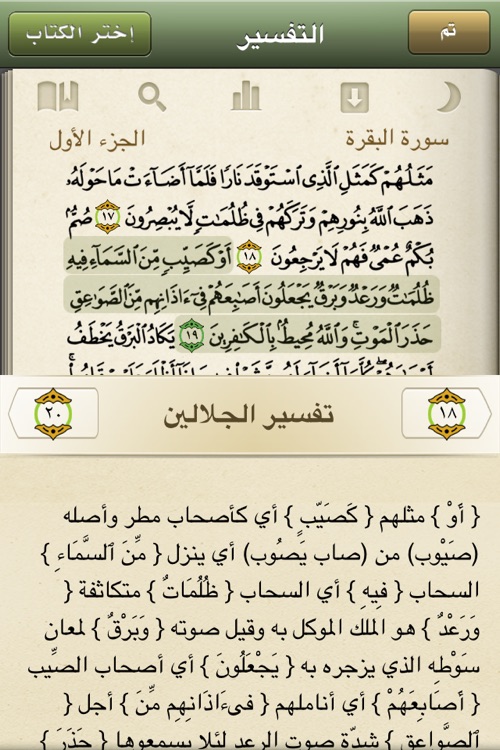 إختر الكتاب التفسير تم
سورة البقرة الجزء الأول
مَثَلُهُمْ كَمَثَلِ ٱلَّذِى ٱسْتَوْقَدَ نَارًا فَلَمَّآ أَضَآءَتْ مَا حَوْلَهُۥ
ذَهَبَ ٱللَّهُ بِنُورِهِمْ وَتَرَكَهُمْ فِى ظُلُمَٰتٍ لَّا يُبْصِرُونَ ١٧ صُمٌّۢ
بُكْمٌ عُمْىٌ فَهُمْ لَا يَرْجِعُونَ ١٨ أَوْ كَصَيِّبٍ مِّنَ ٱلسَّمَآءِ فِيهِ
ظُلُمَٰتٌ وَرَعْدٌ وَبَرْقٌ يَجْعَلُونَ أَصَٰبِعَهُمْ فِىٓ ءَاذَانِهِم مِّنَ ٱلصَّوَٰعِقِ
حَذَرَ ٱلْمَوْتِ ۚ وَٱللَّهُ مُحِيطٌۢ بِٱلْكَٰفِرِينَ ١٩ يَكَادُ ٱلْبَرْقُ يَخْطَفُ
١٨ تفسير الجلالين ٢٠
{ أَوْ } مثلهم { كَصَيّبٍ } أي كأصحاب مطر وأصله
(صَيْوب) من (صاب يَصُوب) أي ينزل { مِّنَ ٱلسَّمَاءِ }
السحاب { فِيهِ } أي السحاب { ظُلُمَاتٌ } متكاثفة {
وَرَعْدٌ } هو الملك الموكل به وقيل صوته { وَبَرْقٌ } لمعان
سَوْطِه الذي يزجره به { يَجْعَلُونَ } أي أصحاب الصيِّب
{ أَصَابِعَهُمْ } أي أناملهم { فىءَاذَانِهِم مِّنَ } أجل {
ٱلصَّوَاعِقِ } شدّة صوت الرعد لئلا يسمعوها { حَذَرَ }